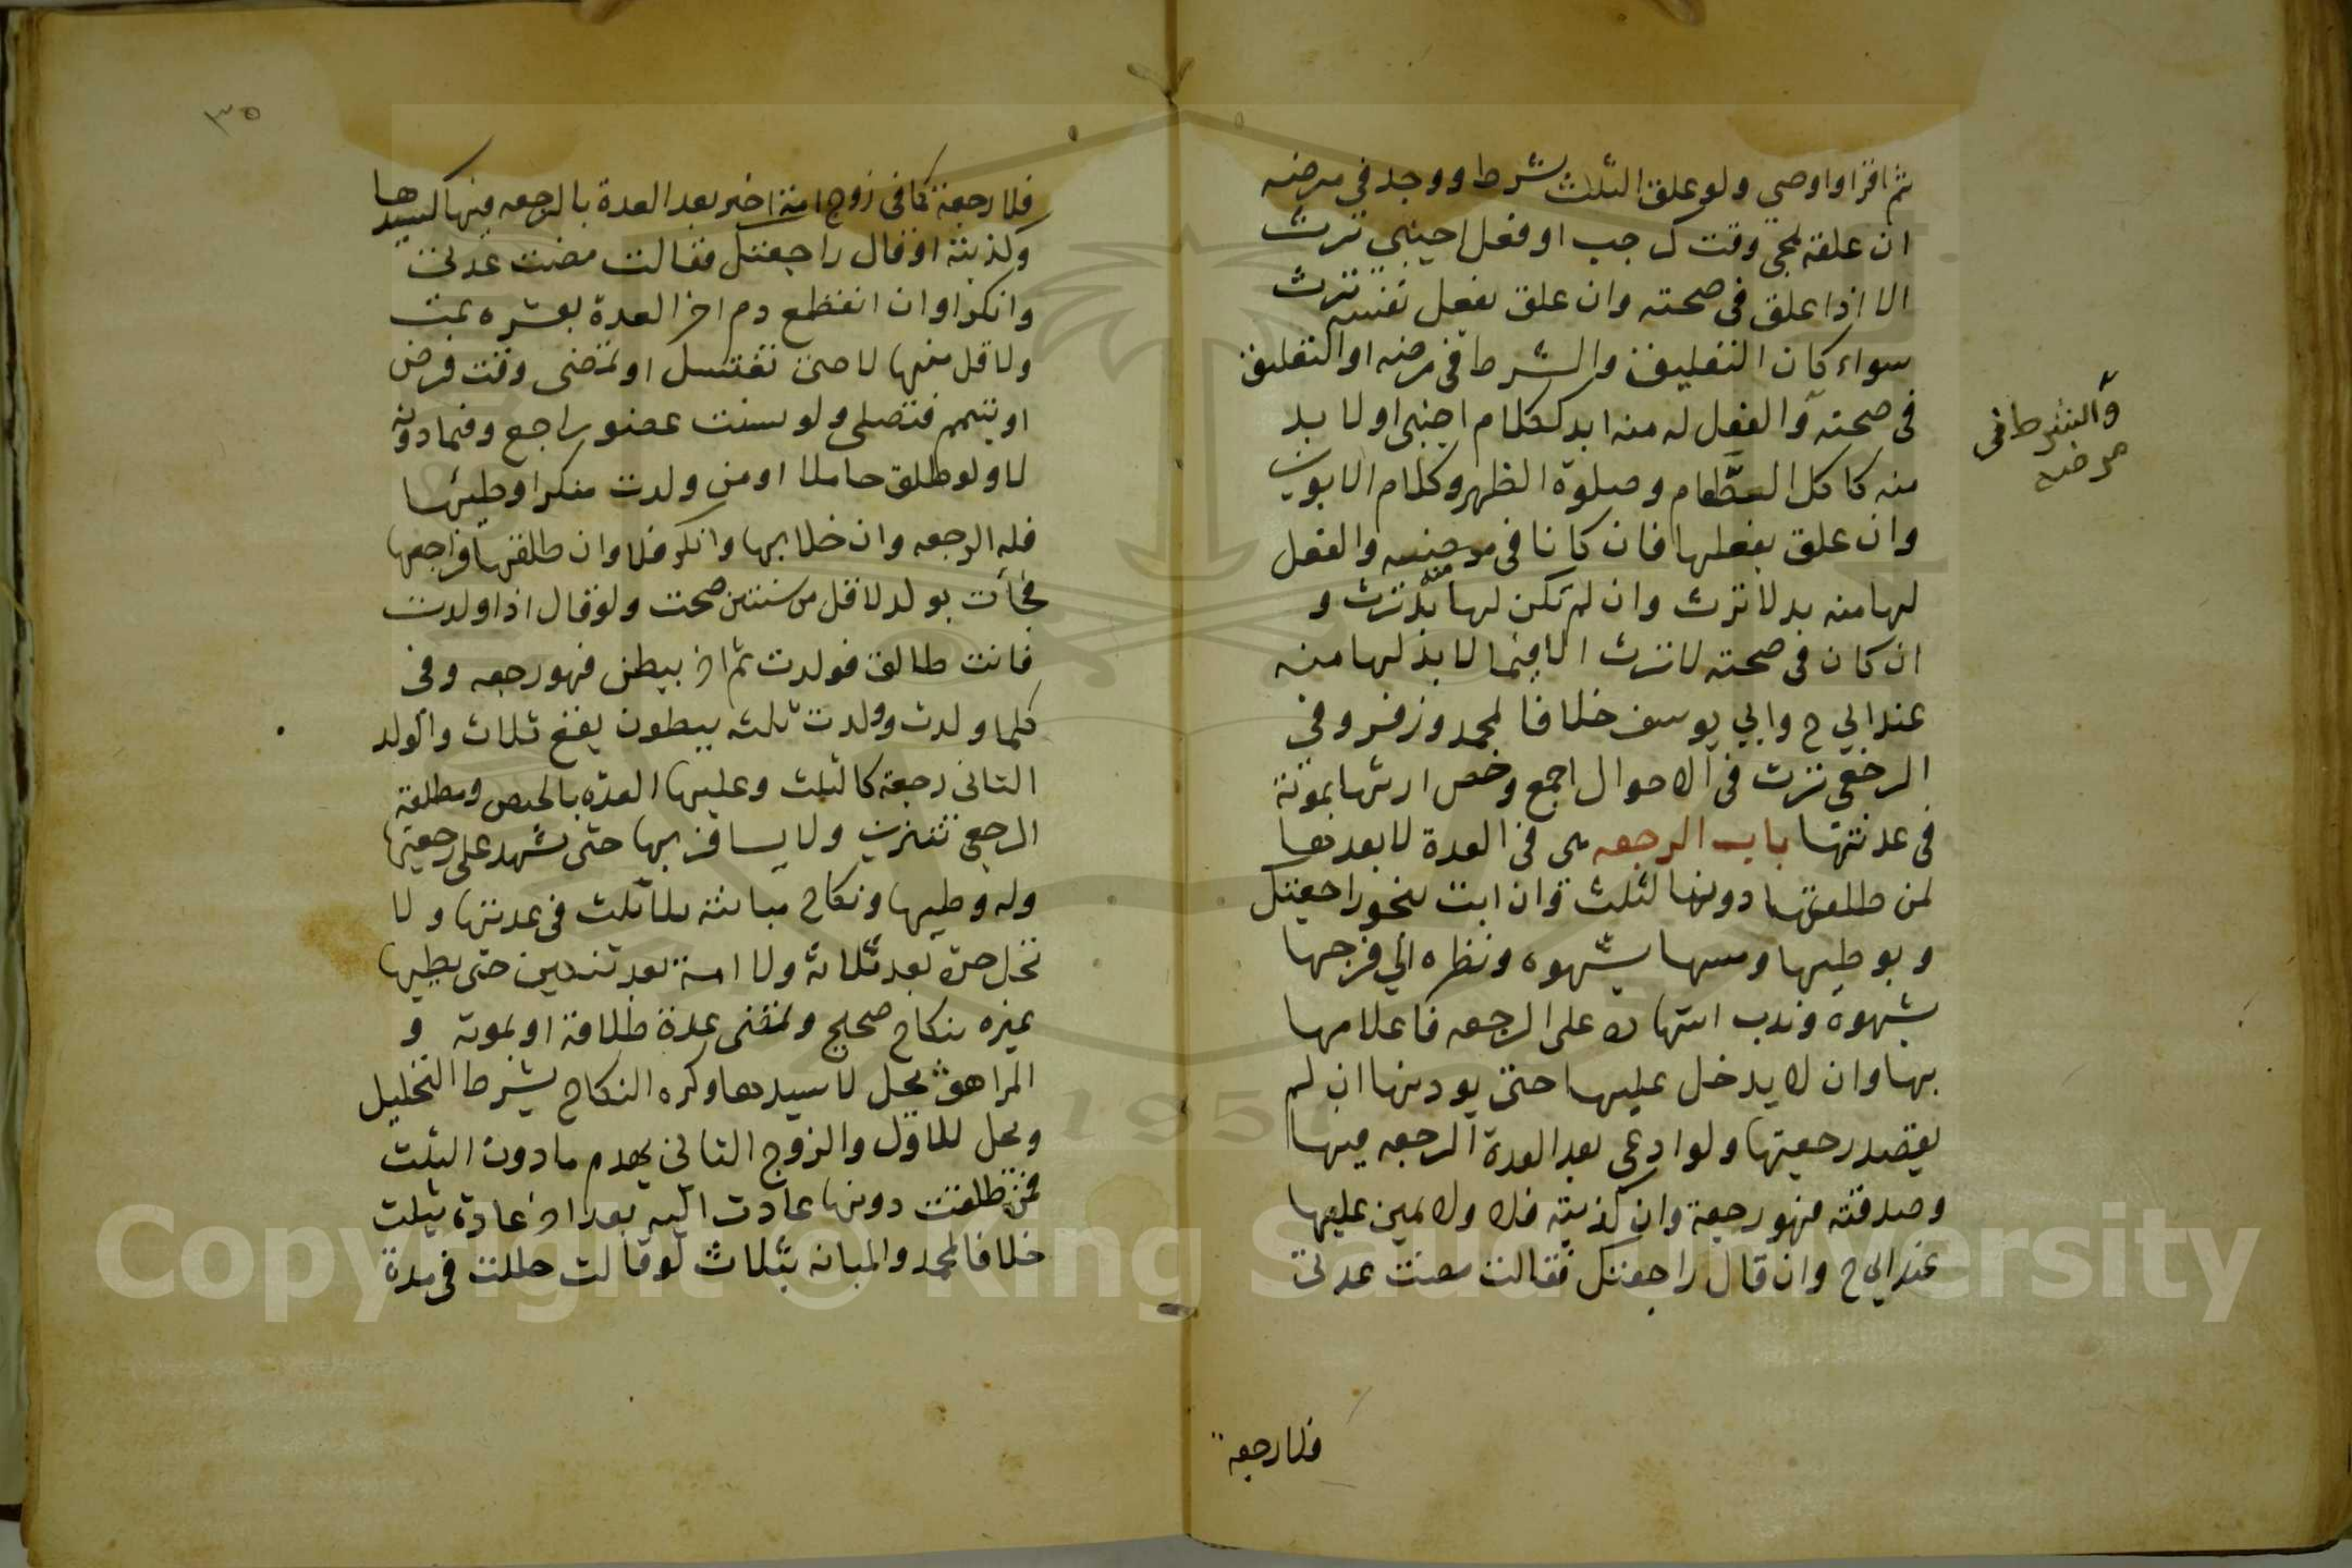 ثم اقر او اوصي ولو علق الثلاث بشرط ووجد في مرضه
ان علقه بمجي وقت كرجب او فعل اجنبي ترث
الا اذا علق في صحته وان علق بفعل نفسه ترث
سواء كان التعليق والشرط في مرضه او التعليق
في صحته والفعل له منه ابد ككلام اجنبي او لا بد
منه كاكل الطعام وصلوة الظهر وكلام الابوين
وان علق بفعلها فان كانا في مرضه والفعل
لها منه بد لا ترث وان لم تكن لها منه بد ترث و
ان كان في صحته لا ترث الا فيما لا بد لها منه
عند ابي ح وابي يوسف خلافا لمحمد وزفر وفي
الرجعي ترث في الاحوال اجمع وخص ارثها بموته
في عدتها باب الرجعه هي في العدة لا بعدها
لمن طلقها دون الثلث وان ابت بنحو راجعتك
وبوطيها ومسها بشهوه ونظره الي فرجها
بشهوة وندب اشهاده على الرجعه فاعلامها
بها وان لا يدخل عليها حتى يوذنها ان لم
يقصد رجعتها ولو ادعى بعد العدة الرجعه فيها
وصدقته فهو رجعة وان كذبته فلا ولا يمين عليها
عند ابي ح وان قال راجعتك فقالت مضت عدتي
والشرط في
مرضه
فلا رجعة
٣٥
فلا رجعة كما في زوج امة اخبر بعد العدة بالرجعه فيها لسيدها
وكذبته او قال راجعتك فقالت مضت عدتي
وانكرا وان انقطع دم اخر العدة بعشره تمت
ولاقل منها لا حتى تغتسل او تمضى وقت فرض
او تتيمم فتصلي ولو نسيت عضو راجع وفيما دونه
لا ولو طلق حاملا او من ولدت منكرا وطيها
فله الرجعه وان خلا بها وانكر فلا وان طلقها فراجعها
فجأت بولد لاقل من سنتين صحت ولو قال اذا ولدت
فانت طالق فولدت ثم اخر ببطن فهو رجعه وفي
كلما ولدت وولدت ثلثه ببطون يقع ثلاث والولد
الثاني رجعة كالثلث وعليها العده بالحيض ومطلقة
الرجعي تتزين ولا يسافر بها حتى يشهد على رجعتها
وله وطيها ونكاح مبانته بلا ثلث في عدتها ولا
تحل حرة بعد ثلاثة ولا امة بعد ثنتين حتى يطيها
غيره بنكاح صحيح وتمضى عدة طلاقه او بموته و
المراهق يحل لا سيدها وكره النكاح بشرط التحليل
ويحل للاول والزوج الثاني يهدم ما دون الثلث
فمن طلقت دونها عادت اليه بعد اخر عادة بثلث
خلافا لمحمد والمبانه بثلاث لو قالت حللت في مدة